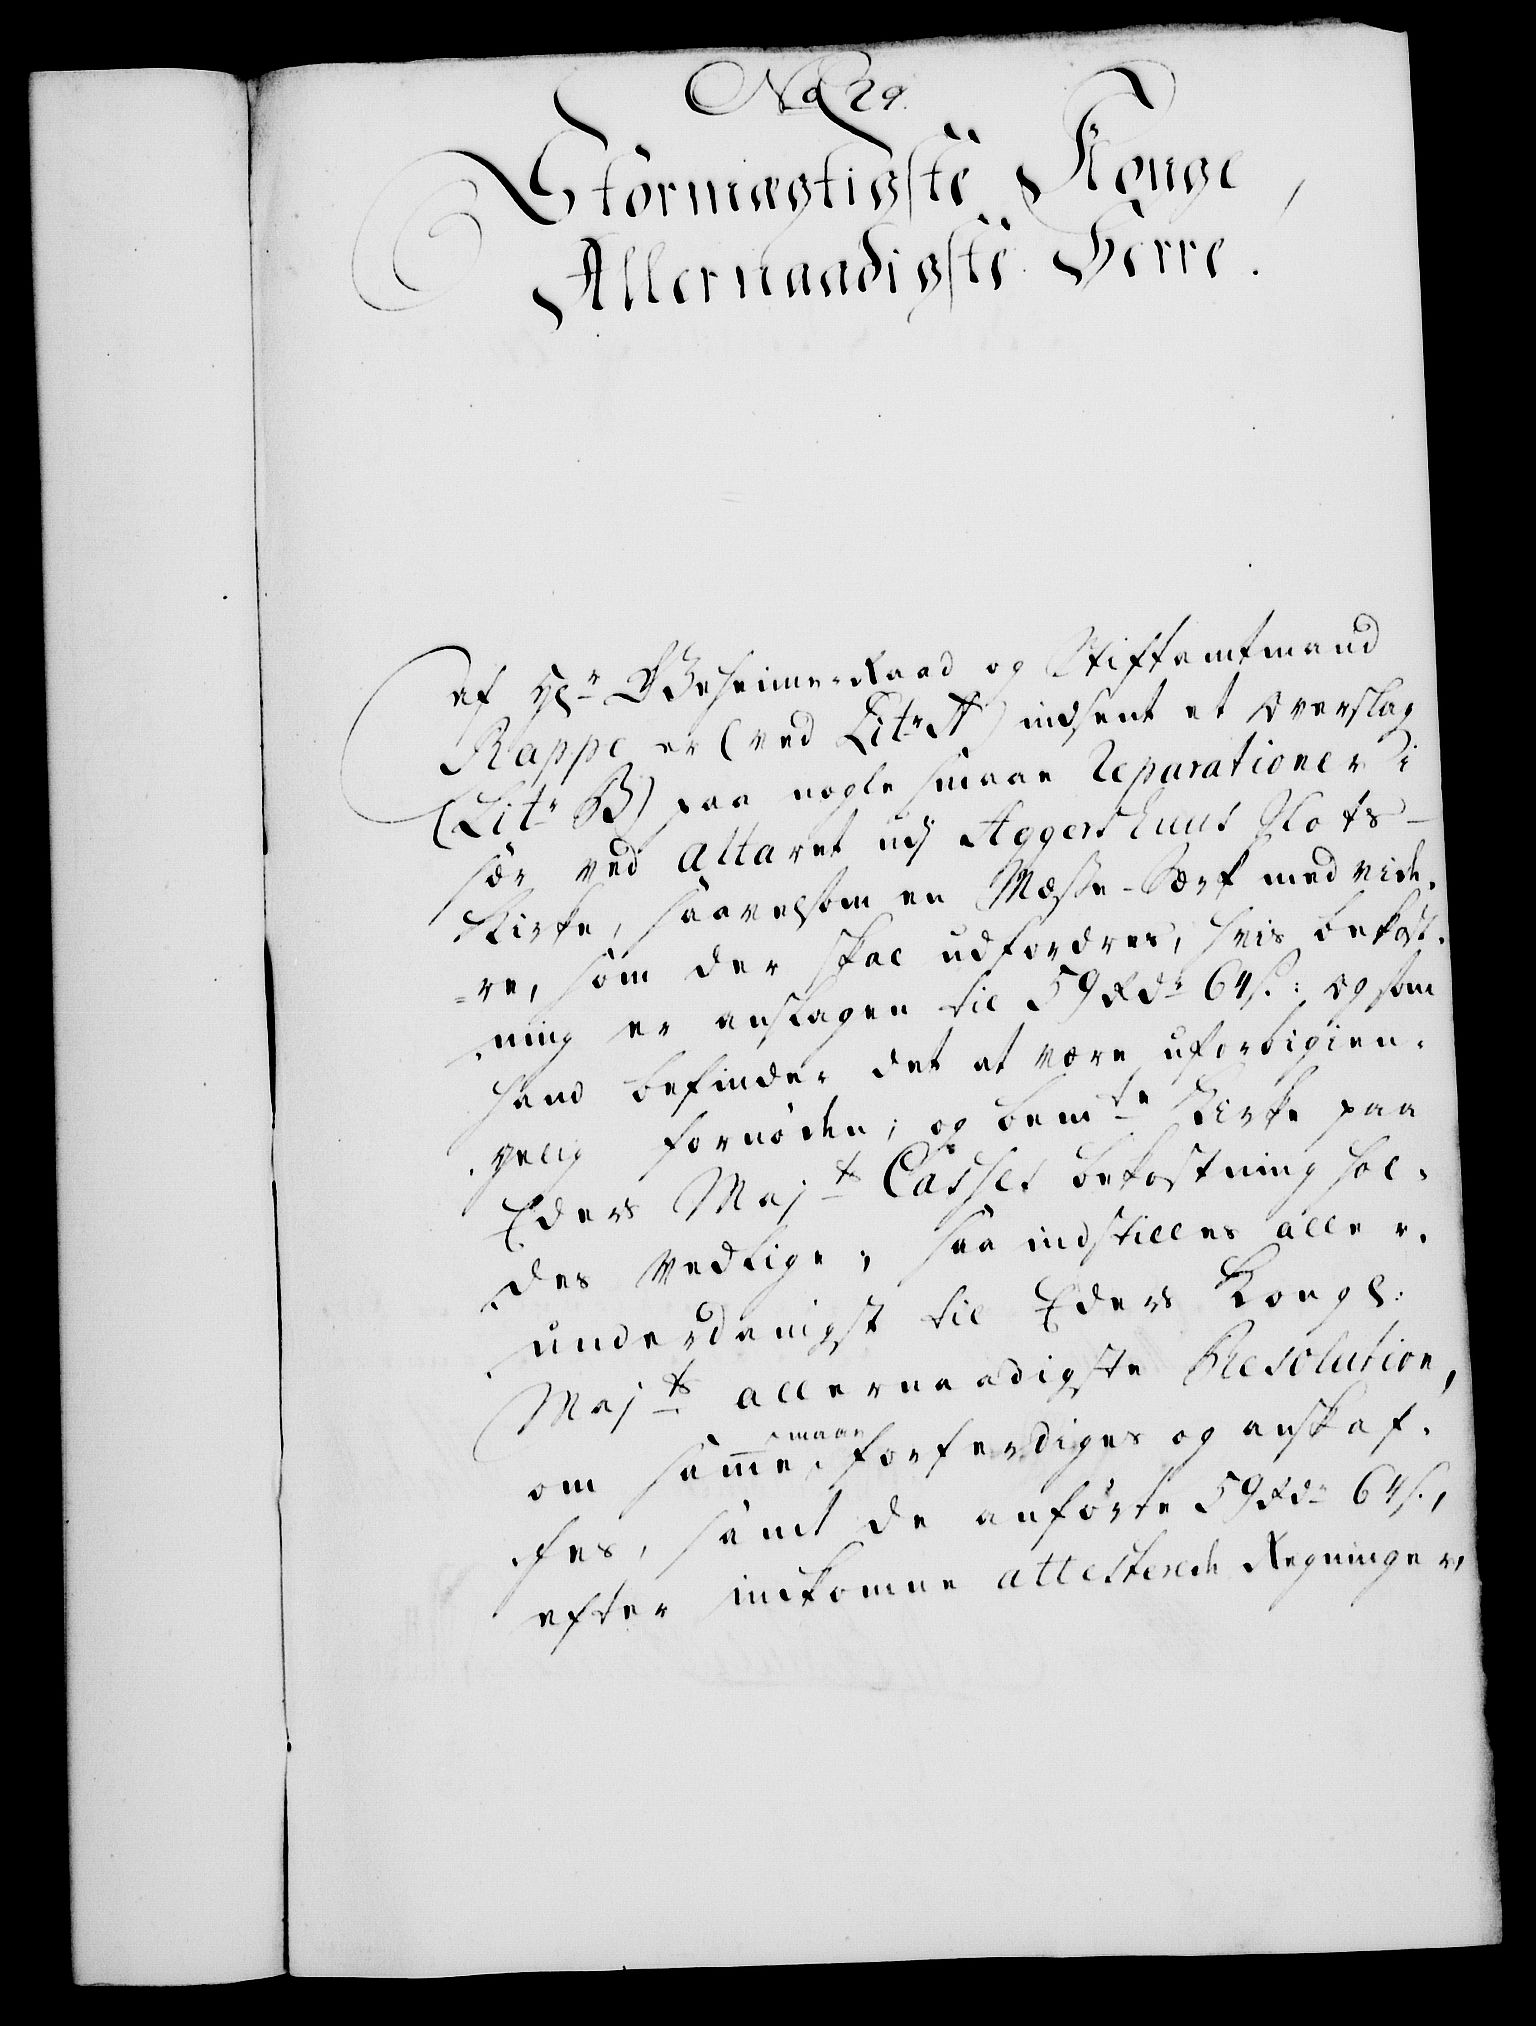 No 29.
Stormægtigste Konge,
Allernaadigste Herre.
Af Hr Geheime-Raad og Stiftamtmand
Rappe er (ved Litr A) indsent et Overslag
(Litr B) paa nogle smaae Reparationer i
sær ved Altaret udj Aggershuus Slots-
Kirke, saavelsom en Mæsse-Særk med vide-
=re, som der skal udfordres, hvis bekost-
ning er anslagen til 59 Rdr 64 s: og som
hand befinder det at være uforbigien-
gelig fornøden; og bemte Kirke paa
Eders Majts Casses bekostning hol-
des vedlige; saa indstilles aller-
underdanigst til Eders Kongl:
Majts allernaadigste Resolution,
om samme maae forferdiges og anskaf-
fes, samt de anførte 59 Rdr 64 s,
efter indkomne attesterede Regninger,